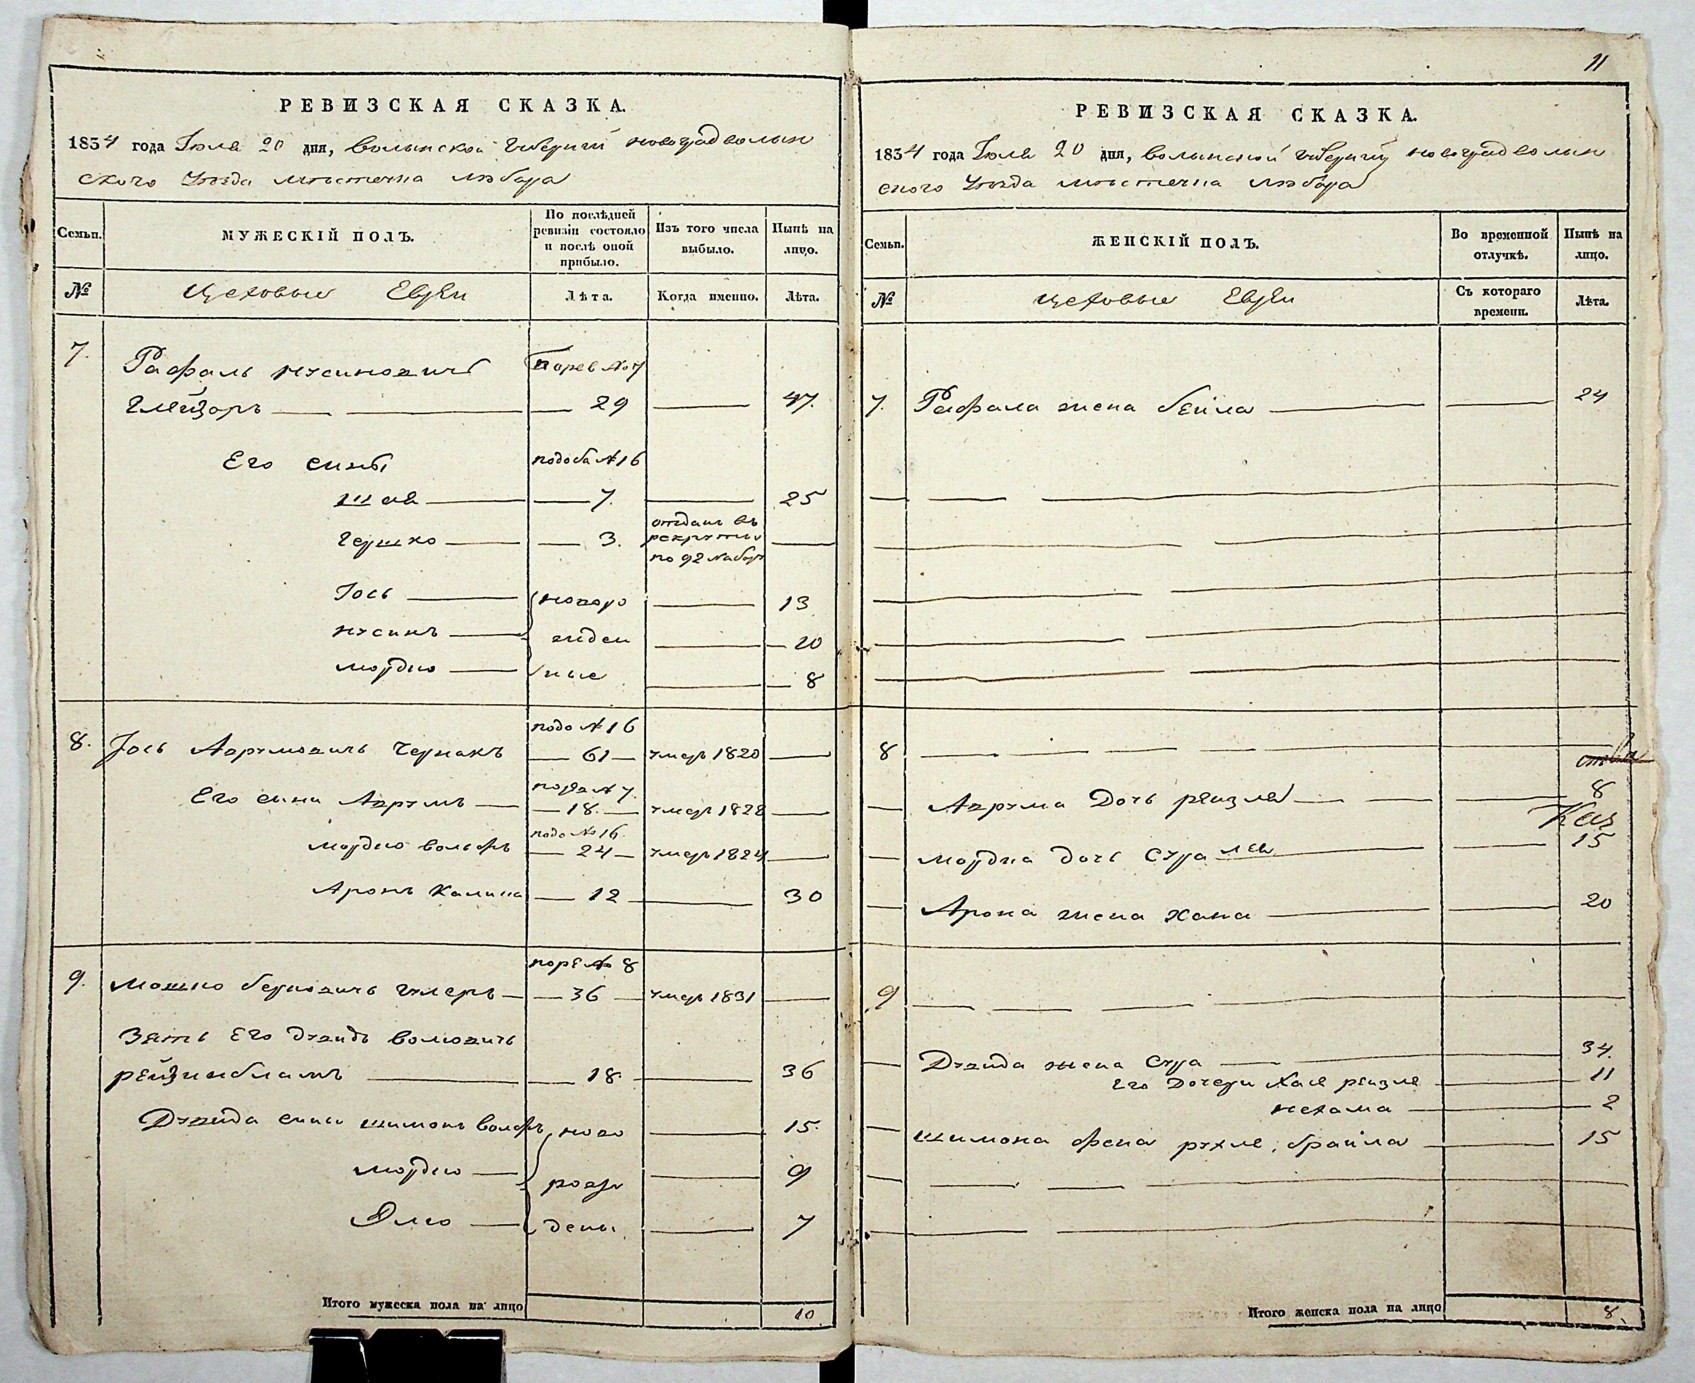 РЕВИЗСКАЯ СКАЗКА.
1834 года Июля 20 дня, Волынской Губернiи новоградволын
ского уѣзда мѣстечка Любара
Семьи.
МУЖЕСКIЙ ПОЛЪ.
По послѣдней ревизiи состояло и послѣ оной прибыло.
Изъ того числа выбыло.
Нынѣ на лицо.
№
Цеховые Евреи
Лѣта.
Когда именно.
Лѣта.
7. Рафаль Нусиновичъ по рев №7
Глейзоръ 29 47.
Его сины подоба №16
Шая 7. 25
Гершко 3. отданъ въ рекруты по 92 набор
Iось новоро 13
Нусинъ жден 10
Мордко ные 8
подо №16
8. Iось Аврумовичъ Чернякъ 61 умер 1820
Его сини Аврумъ 18. умер 1828
подо №16
Мордко Вольфъ 24 умер 1824
Аронъ Калина 12 30
по ре № 8
9. Мошко Берковичъ 36 умер 1831
Зять Его Дувидъ Волковичъ
18 36
Дувида сины Шимонъ Вольфъ ново 15.
Мордко рож 9
Элио дены 7
Итого мужеска пола на лицо 10.
11
РЕВИЗСКАЯ СКАЗКА.
1834 года Июля 20 дня, Волынской Губернiи новоградволын
ского уѣзда мѣстечка Любара
Семьи.
ЖЕНСКIЙ ПОЛЪ.
Во временной отлучкѣ.
Нынѣ на лицо.
№
Цеховые Евреи
Съ котораго времени.
Лѣта.
7. Рафала жена Бейла 24
8
Аврума Дочь Рейзля 8
Мордка дочь Сура Леа 15
Арона жена Хана 20
9
Дувида жена Сура 34.
Его Дочери Хая Рейзле 11
Нехама 2
Шимона жена Рухле, Брайла 15
Итого женска пола на лицо 8.